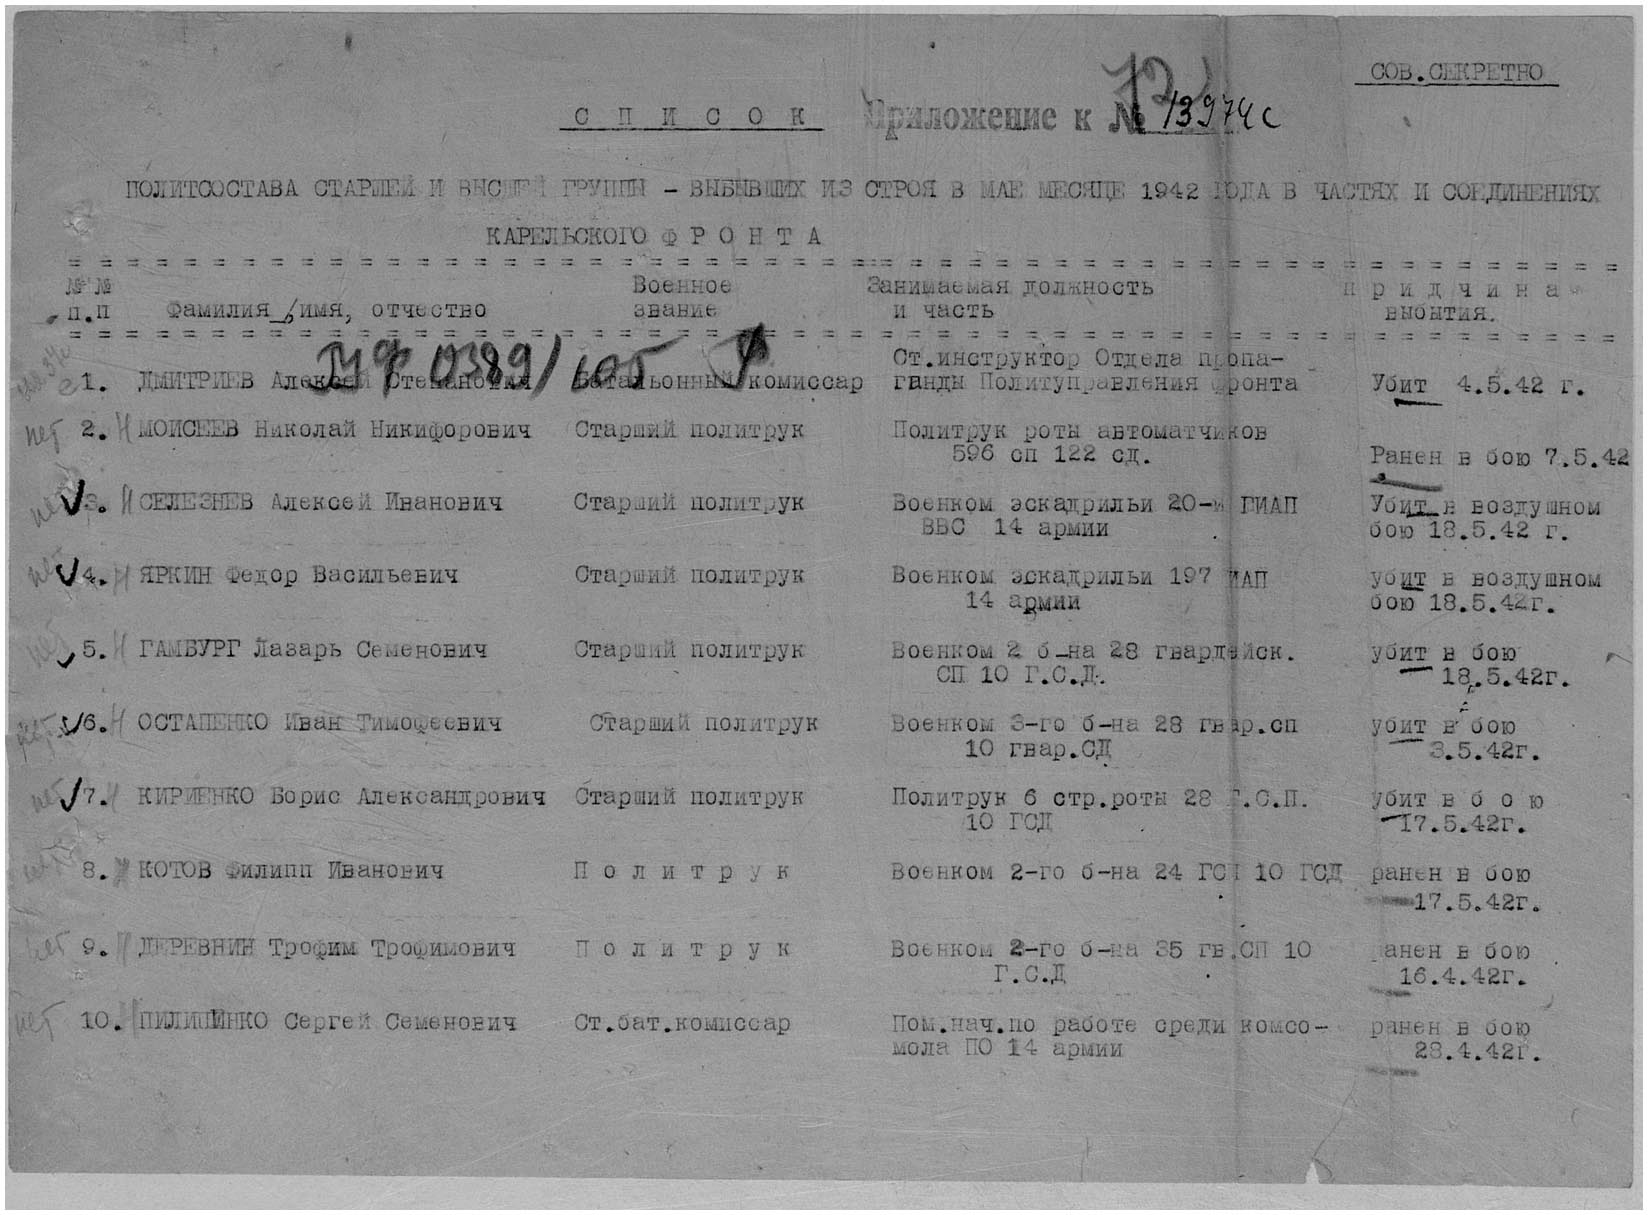 СОВ.СЕКРЕТНО
С П И С О К Приложение к № 13974с
ПОЛИТСОСТАВА СТАРШЕЙ И ВЫСШЕЙ ГРУППЫ - ВЫБЫВШИХ ИЗ СТРОЯ В МАЕ МЕСЯЦЕ 1942 ГОДА В ЧАСТЯХ И СОЕДИНЕНИЯХ
КАРЕЛЬСКОГО Ф Р О Н Т А
№ № Военное Занимаемая должность П р и д ч и н а
п.п Фамилия, имя, отчество звание и часть выбытия.
Ст.инструктор Отдела пропа-
1. ДМИТРИЕВ Алексей Степанович Батальонный комиссар ганды Политуправления фронта Убит 4.5.42 г.
2. Н МОИСЕЕВ Николай Никифорович Старший политрук Политрук роты автоматчиков
нет 596 сп 122 сд. Ранен в бою 7.5.42
3. Н СЕЛЕЗНЕВ Алексей Иванович Старший политрук Военком эскадрильи 20-и ГИАП Убит в воздушном
нет ВВС 14 армии бою 18.5.42 г.
4. Н ЯРКИН Федор Васильевич Старший политрук Военком эскадрильи 197 ИАП убит в воздушном
нет 14 армии бою 18.5.42г.
нет 5. Н ГАМБУРГ Лазарь Семенович Старший политрук Военком 2 б-на 28 гвардейск. убит в бою
СП 10 Г.С.Д. 18.5.42г.
нет 6. Н ОСТАПЕНКО Иван Тимофеевич Старший политрук Военком 3-го б-на 28 гвар.сп убит в бою
10 гвар.СД 3.5.42г.
нет 7. Н КИРИЕНКО Борис Александрович Старший политрук Политрук 6 стр.роты 28 Г.С.П. убит в б о ю
10 ГСД 17.5.42г.
8. КОТОВ Филипп Иванович П о л и т р у к Военком 2-го б-на 24 ГСП 10 ГСД ранен в бою
17.5.42г.
нет 9. Н ДЕРЕВНИН Трофим Трофимович П о л и т р у к Военком 2-го б-на 35 гв.СП 10 ранен в бою
Г.С.Д 16.4.42г.
нет 10. Н ПИЛИПИНКО Сергей Семенович Ст.бат.комиссар Пом.нач.по работе среди комсо- ранен в бою
мола ПО 14 армии 28.4.42г.